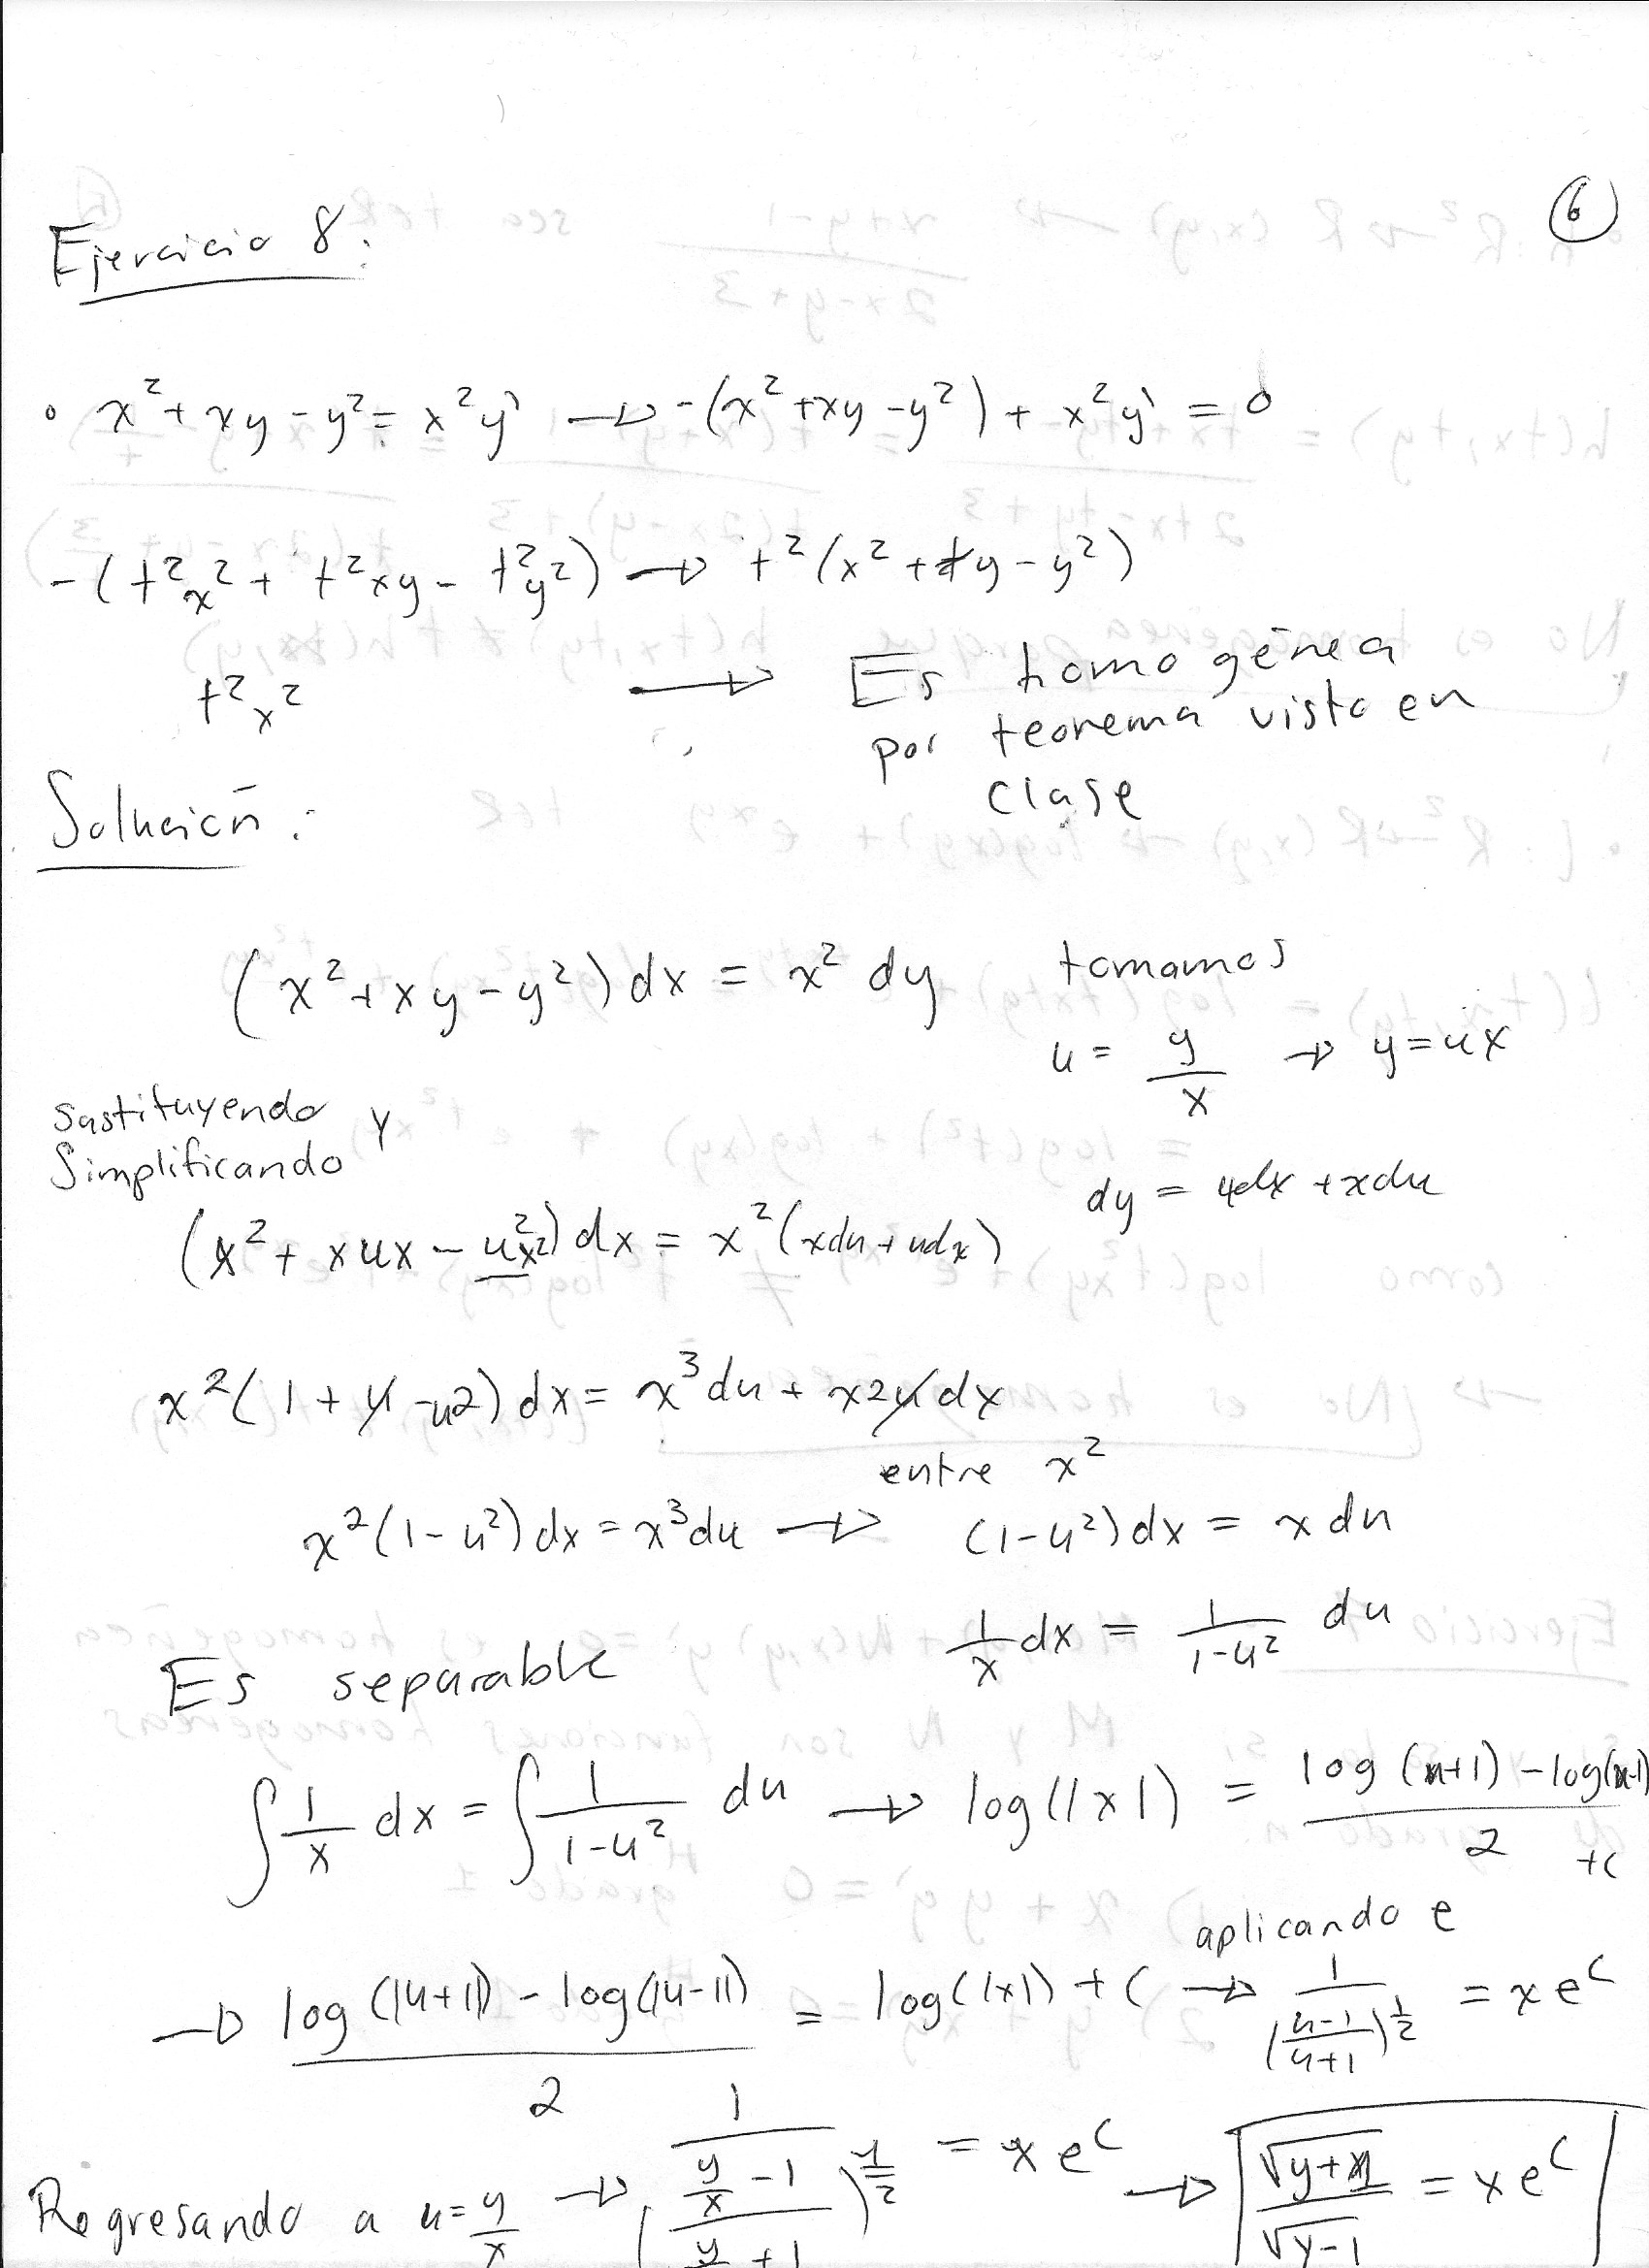 6
Ejercicio 8:
• x² + xy - y² = x²y' → -(x² + xy - y²) + x²y' = 0
-(t²x² + t²xy - t²y²) → t²(x² + xy - y²)
t²x² → Es homogénea
por teorema visto en
clase
Solución:
(x² + xy - y²)dx = x² dy tomamos
u = y/x → y = ux
Sustituyendo y
Simplificando
dy = udx + xdu
(x² + xux - u²x²)dx = x²(xdu + udx)
x²(1 + u - u2)dx = x³du + x2udx
entre x²
x²(1-u²)dx = x³du → (1-u²)dx = x du
1/x dx = 1/(1-u²) du
Es separable
∫ 1/x dx = ∫ 1/(1-u²) du → log(|x|) = (log(u+1) - log(u-1))/2 + C
aplicando e
→ (log(|u+1|) - log(|u-1|))/2 = log(|x|) + C → 1/((u-1)/(u+1))^(1/2) = x e^C
Regresando a u = y/x → 1/((y/x - 1)/(y/x + 1))^(1/2) = x e^C → √(y+x)/√(y-1) = x e^C